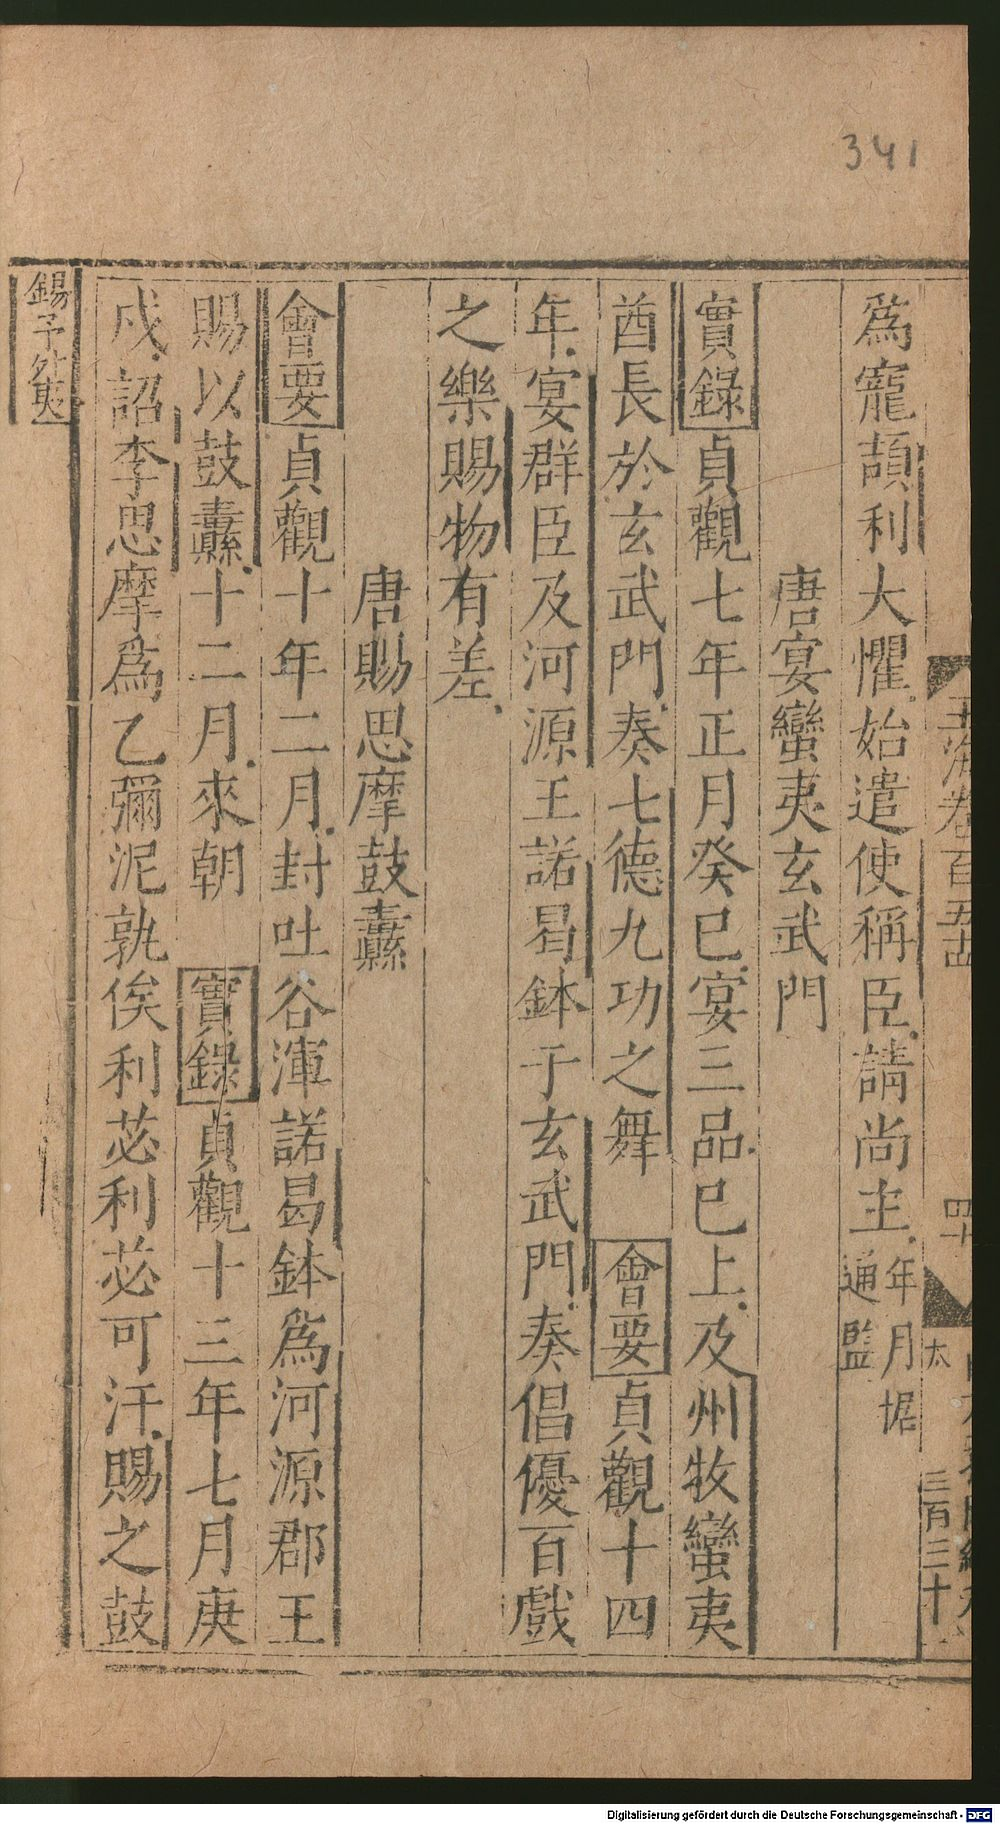 341
玉海卷百五十四
四十
太
三百三十
爲寵頡利大懼始遣使稱臣請尚主年月據通鑑
唐宴蠻夷玄武門
實錄貞觀七年正月癸巳宴三品已上及州牧蠻夷
酋長於玄武門奏七德九功之舞 會要貞觀十四
年宴群臣及河源王諾曷鉢于玄武門奏倡優百戲
之樂賜物有差
唐賜思摩鼓纛
會要貞觀十年二月封吐谷渾諾曷鉢爲河源郡王
賜以鼓纛十二月來朝 實錄貞觀十三年七月庚
戍詔李思摩爲乙彌泥孰俟利苾利苾可汗賜之鼓
錫予外夷
Digitalisierung gefördert durch die Deutsche Forschungsgemeinschaft - DFG